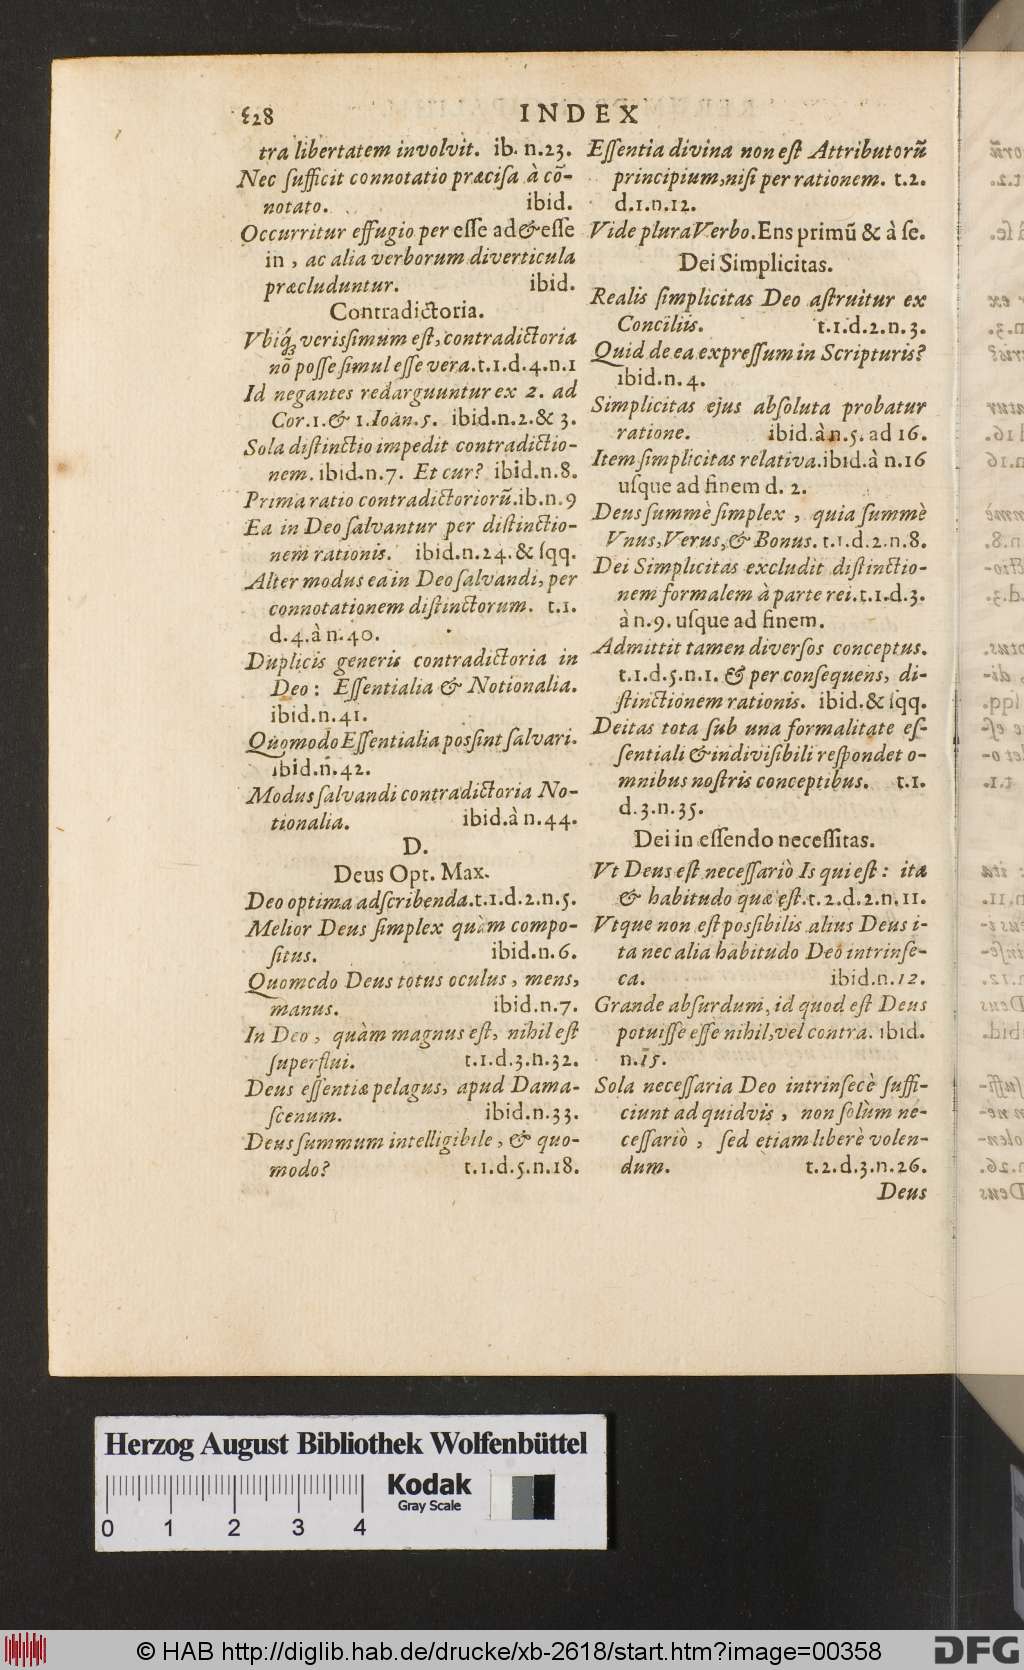 828 INDEX
tra libertatem involvit. ib. n.23.
Nec ſufficit connotatio præciſa à cõ-
notato. ibid.
Occurritur effugio per eſſe ad & eſſe
in, ac alia verborum diverticula
præcluduntur. ibid.
Contradictoria.
Vbiq́; verisſimum eſt, contradictoria
nõ poſſe ſimul eſſe vera. t.1.d.4.n.1
Id negantes redarguuntur ex 2. ad
Cor.1. & 1.Ioàn.5. ibid.n.2.& 3.
Sola diſtinctio impedit contradictio-
nem. ibid.n.7. Et cur? ibid.n.8.
Prima ratio contradictoriorũ. ib.n.9
Ea in Deo ſalvantur per diſtinctio-
nem rationis. ibid.n.24.& ſqq.
Alter modus ea in Deo ſalvandi, per
connotationem diſtinctorum. t.1.
d.4.à n.40.
Duplicis generis contradictoria in
Deo: Eſſentialia & Notionalia.
ibid.n.41.
Quomodo Eſſentialia posſint ſalvari.
ibid.n.42.
Modus ſalvandi contradictoria No-
tionalia. ibid.à n.44.
D.
Deus Opt. Max.
Deo optima adſcribenda. t.1.d.2.n.5.
Melior Deus ſimplex quàm compo-
ſitus. ibid.n.6.
Quomcdo Deus totus oculus, mens,
manus. ibid.n.7.
In Deo, quàm magnus eſt, nihil eſt
ſuperflui. t.1.d.3.n.32.
Deus eſſentiæ pelagus, apud Dama-
ſcenum. ibid.n.33.
Deus ſummum intelligibile, & quo-
modo? t.1.d.5.n.18.
Eſſentia divina non eſt Attributorũ
principium, niſi per rationem. t.2.
d.1.n.12.
Vide plura Verbo. Ens primũ & à ſe.
Dei Simplicitas.
Realis ſimplicitas Deo aſtruitur ex
Conciliis. t.1.d.2.n.3.
Quid de ea expreſſum in Scripturis?
ibid.n.4.
Simplicitas ejus abſoluta probatur
ratione. ibid.à n.5.ad 16.
Item ſimplicitas relativa. ibid.à n.16
uſque ad finem d. 2.
Deus ſummè ſimplex, quia ſummè
Vnus, Verus, & Bonus. t.1.d.2.n.8.
Dei Simplicitas excludit diſtinctio-
nem formalem à parte rei. t.1.d.3.
à n.9. uſque ad finem.
Admittit tamen diverſos conceptus.
t.1.d.5.n.1. & per conſequens, di-
ſtinctionem rationis. ibid.& ſqq.
Deitas tota ſub una formalitate eſ-
ſentiali & indiviſibili reſpondet o-
mnibus noſtris conceptibus. t.1.
d.3.n.35.
Dei in eſſendo neceſſitas.
Vt Deus eſt neceſſariò Is qui eſt: ita
& habitudo quæ eſt. t.2.d.2.n.11.
Vtque non eſt posſibilis alius Deus i-
ta nec alia habitudo Deo intrinſe-
ca. ibid.n.12.
Grande abſurdum, id quod eſt Deus
potuiſſe eſſe nihil, vel contra. ibid.
n.15.
Sola neceſſaria Deo intrinſecè ſuffi-
ciunt ad quidvis, non ſolùm ne-
ceſſariò, ſed etiam liberè volen-
dum. t.2.d.3.n.26.
Deus
Herzog August Bibliothek Wolfenbüttel
Kodak
Gray Scale
0 1 2 3 4
© HAB http://diglib.hab.de/drucke/xb-2618/start.htm?image=00358
DFG